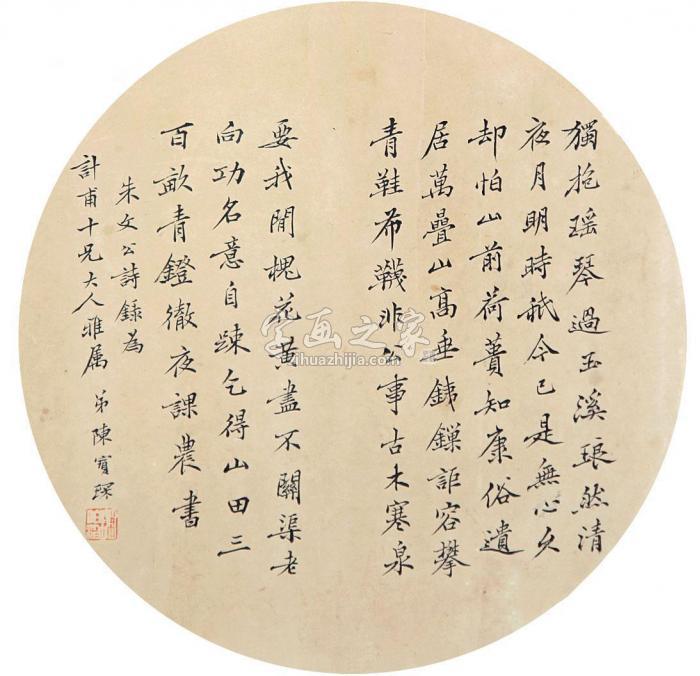 獨抱瑶琴過玉溪琅然清
夜月明時祇今已是無心久
却怕山前荷蕢知康俗遺
居萬疊山高垂鐵鏁詎容攀
青鞵布韈非公事古木寒泉
要我閒槐花黄盡不關渠老
向功名意自踈乞得山田三
百畝青鐙徹夜課農書
朱文公詩録為
計甫十兄大人雅属 弟陳寳琛
字画之家
ihuazhijia.com